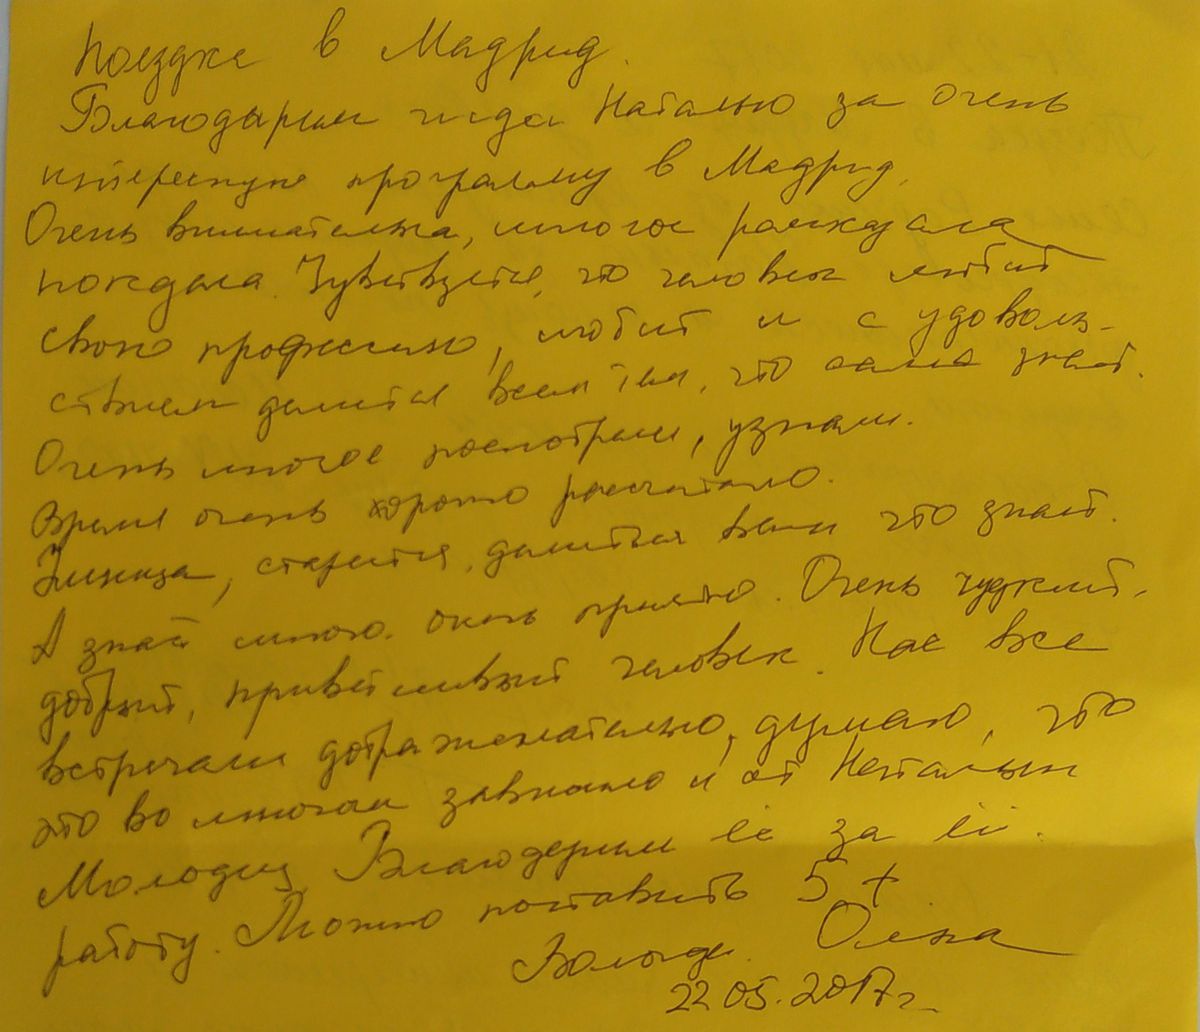 Поездка в Мадрид.
Благодарим гида Наталью за очень
интересную программу в Мадрид.
Очень внимательна, многое рассказала
показала. Чувствуется, что человек любит
свою профессию, любит и с удоволь-
ствием делится всем тем, что сама знает.
Очень многое посмотрели, узнали.
Время очень хорошо рассчитано.
Умница, старается делиться всем что знает.
А знает много. очень приятно. Очень чуткий,
добрый, приветливый человек. Нас все
встречали доброжелательно, думаю, что
это во многом зависело и от Натальи
Молодец Благодарим её за её
работу. Можно поставить 5+
Вологда. Ольга
22.05.2017г.